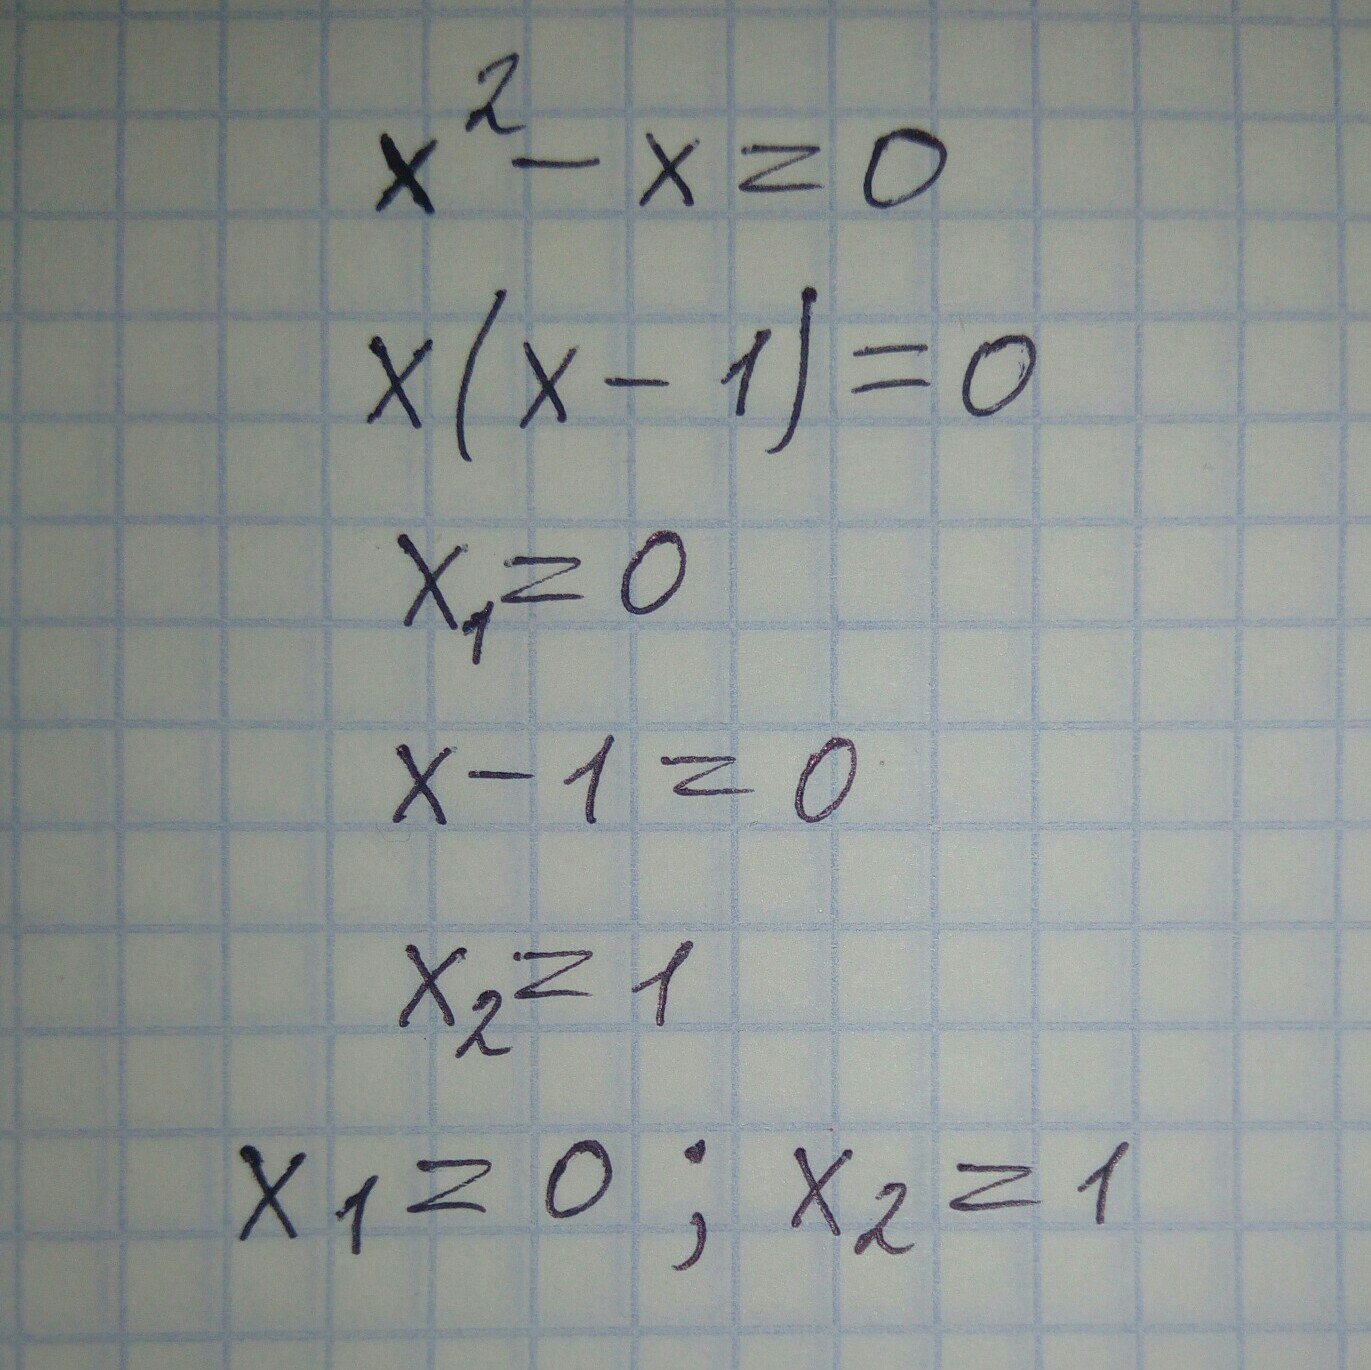 x² - x = 0
x(x - 1) = 0
x₁ = 0
x - 1 = 0
x₂ = 1
x₁ = 0 ; x₂ = 1